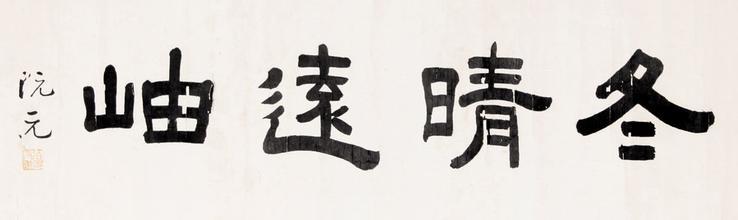 冬晴遠岫
阮元